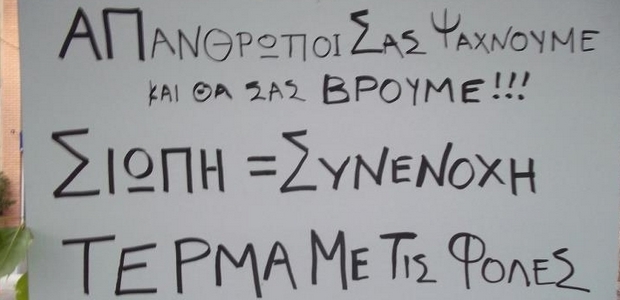 ΑΠΑΝΘΡΩΠΟΙ ΣΑΣ ΨΑΧΝΟΥΜΕ
ΚΑΙ ΘΑ ΣΑΣ ΒΡΟΥΜΕ!!!
ΣΙΩΠΗ = ΣΥΝΕΝΟΧΗ
ΤΕΡΜΑ ΜΕ ΤΙς ΦΟΛΕΣ